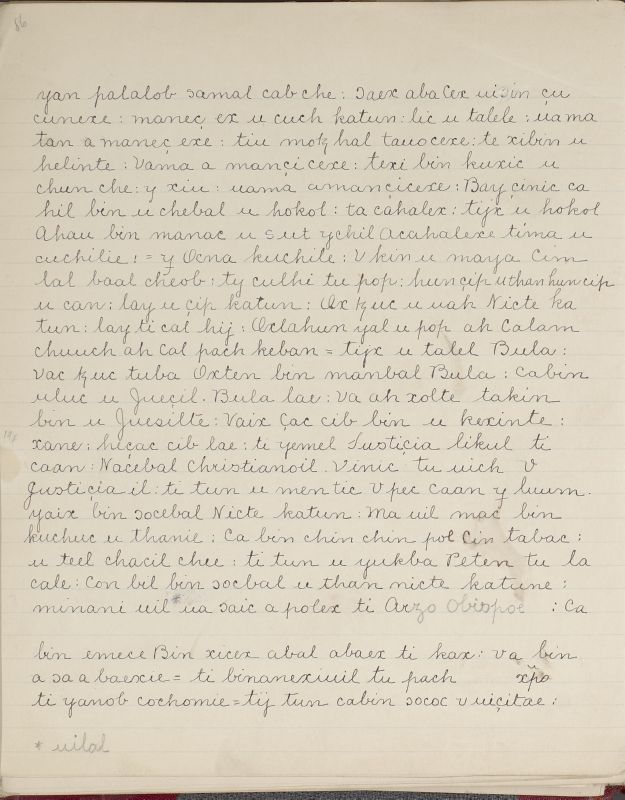 86
yan palalob samal cab che : ɔaex aba Cex uiɔin çu
cunexe : maneç ex u cuch katun : lic u talele : uama
tan a maneç exe : tiu moꜩ hal tauocexe : te xibin u
helinte : Vama a mançicexe : texi bin kuxic u
chun che : y xiu : uama amançicexe : Bay çinic ca
hil bin u chebal u hokol : ta cahalex : tijx u hokol
Ahau bin manac u sut ychil Acahalexe tima u
cuchilie : = y Ocna kuchile : V kin u maya Cim
lal baal cheob : ty culhi tu pop : hunçip uthan hun çip
u can : lay u çip katun : Ox ꜩuc u uah Nicte ka
tun : lay ti cal hij : Oxlahun yal u pop ah Calam
chuuch ah Cal pach keban = tijx u talel Bula :
Vac ꜩuc tuba Oxten bin manbal Bula : Cabin
uluc u Jueçil . Bula lae : Va ah xolte takin
bin u Juesilte : Vaix Çac cib bin u kexinte :
xane : hiçac cib lae : ti yemel Justiçia likul ti
caan : Naçebal Christianoil . Vinic tu uich V
Justiçia il : ti tun u men tic V pec Caan y luum .
yaix bin ɔocebal Nicte katun : Ma uil mac bin
kuchuc u thanie : Ca bin chin chin pol Cin tabac :
u teel chacil chee : ti tun u yukba Peten tu la
cale : Con bil bin ɔocbal u than nicte katune :
minani uil * ua ɔaic a polex ti Arzo Obispoe : Ca
bin emece Bin xicex abal abaex ti kax : va bin
a ɔa a baexie = ti binanexiuil tu pach xp̃o
ti yanob cochomie = tij tun cabin ɔococ v uiçitae :
* uilal